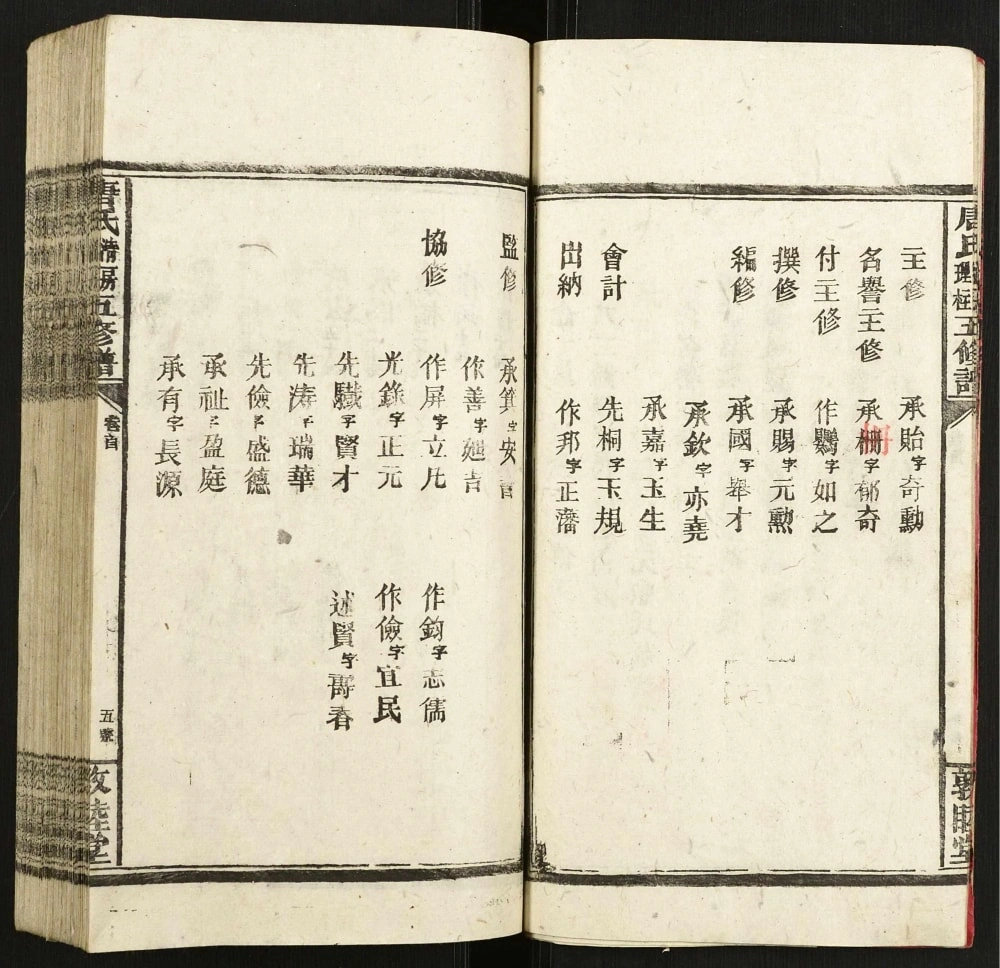 主修　承貽字奇勳
名譽主修　承柵字郁奇
付主修　作鸚字如之
撰修　承賜字元勳
編修　承國字舉才
承欽字亦堯
承嘉字玉生
會計　先桐字玉規
出納　作邦字正藩
監修　承箕字安
作善字廸吉
協修　作屏字立凡　作鈞字志儒
光錄字正元　作儉字宜民
先職字賢才　述賢字壽春
先濤字瑞華
先儉字盛德
承祉字盈庭
承有字長源
唐氏五修譜
卷首
五
敦睦堂